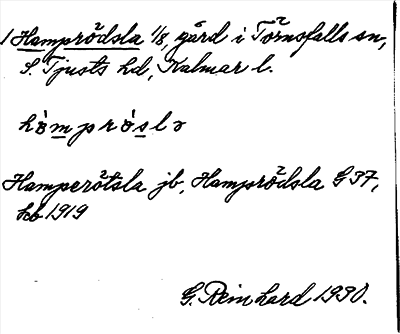 1 Hamprödsla 1/8, gård i Törnsfalls sn,
S. Tjusts hd, Kalmar l.
hòmprósla
Hamperötsla jb, Hamprödsla G 37,
hb 1919
G. Reinhard 1930.